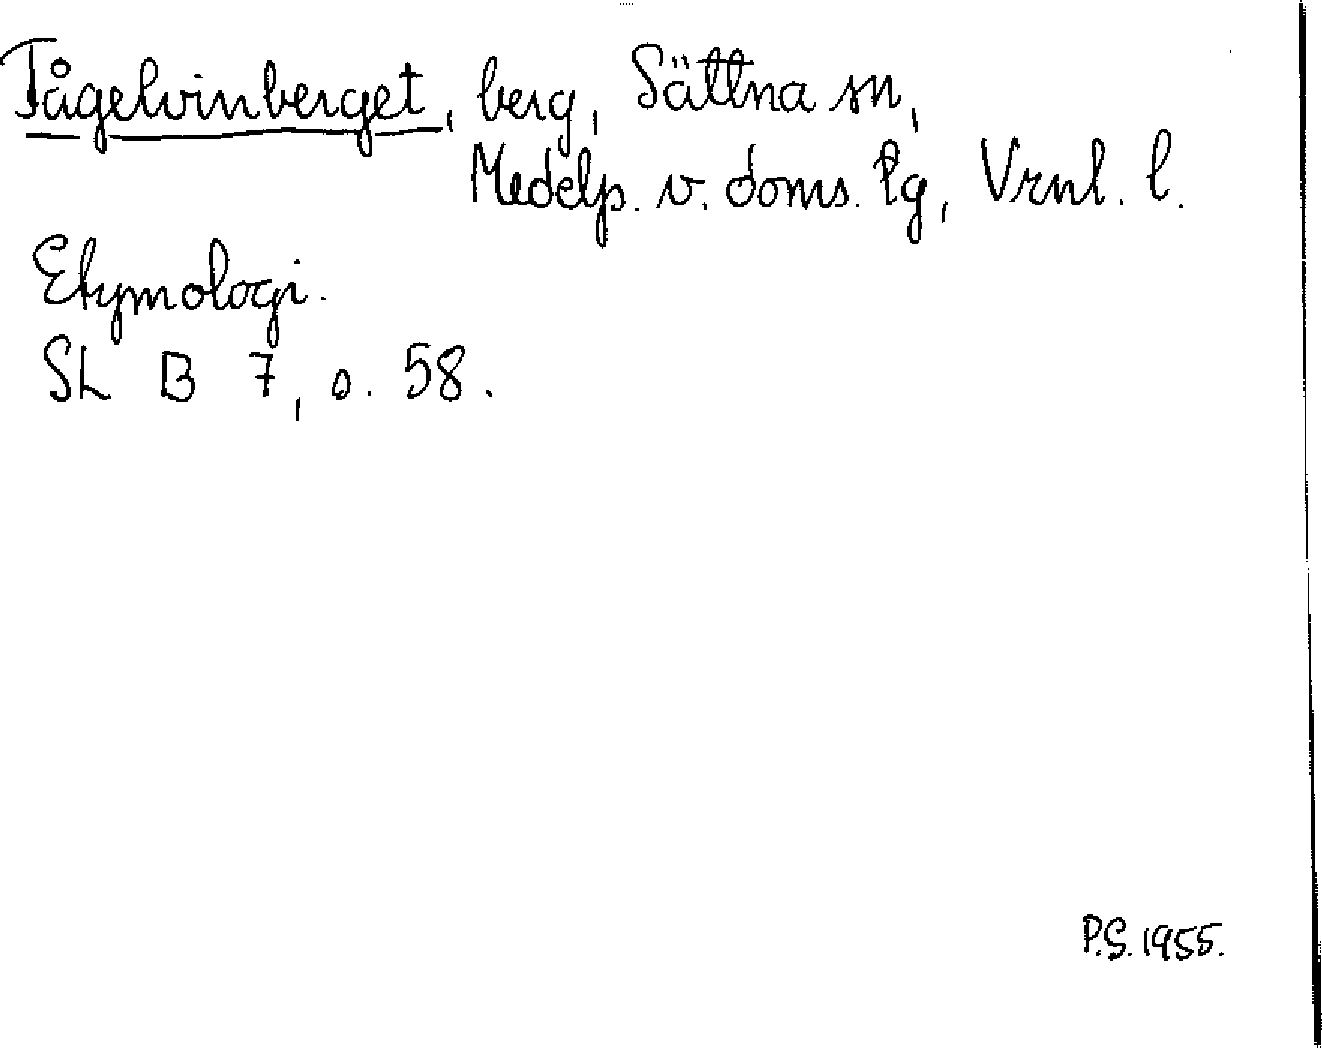 Tågelvinberget, berg, Sättna sn,
Medelp. v. doms. tg, Vrnl. l.
Etymologi.
SL B 7, s. 58.
P.S. 1955.